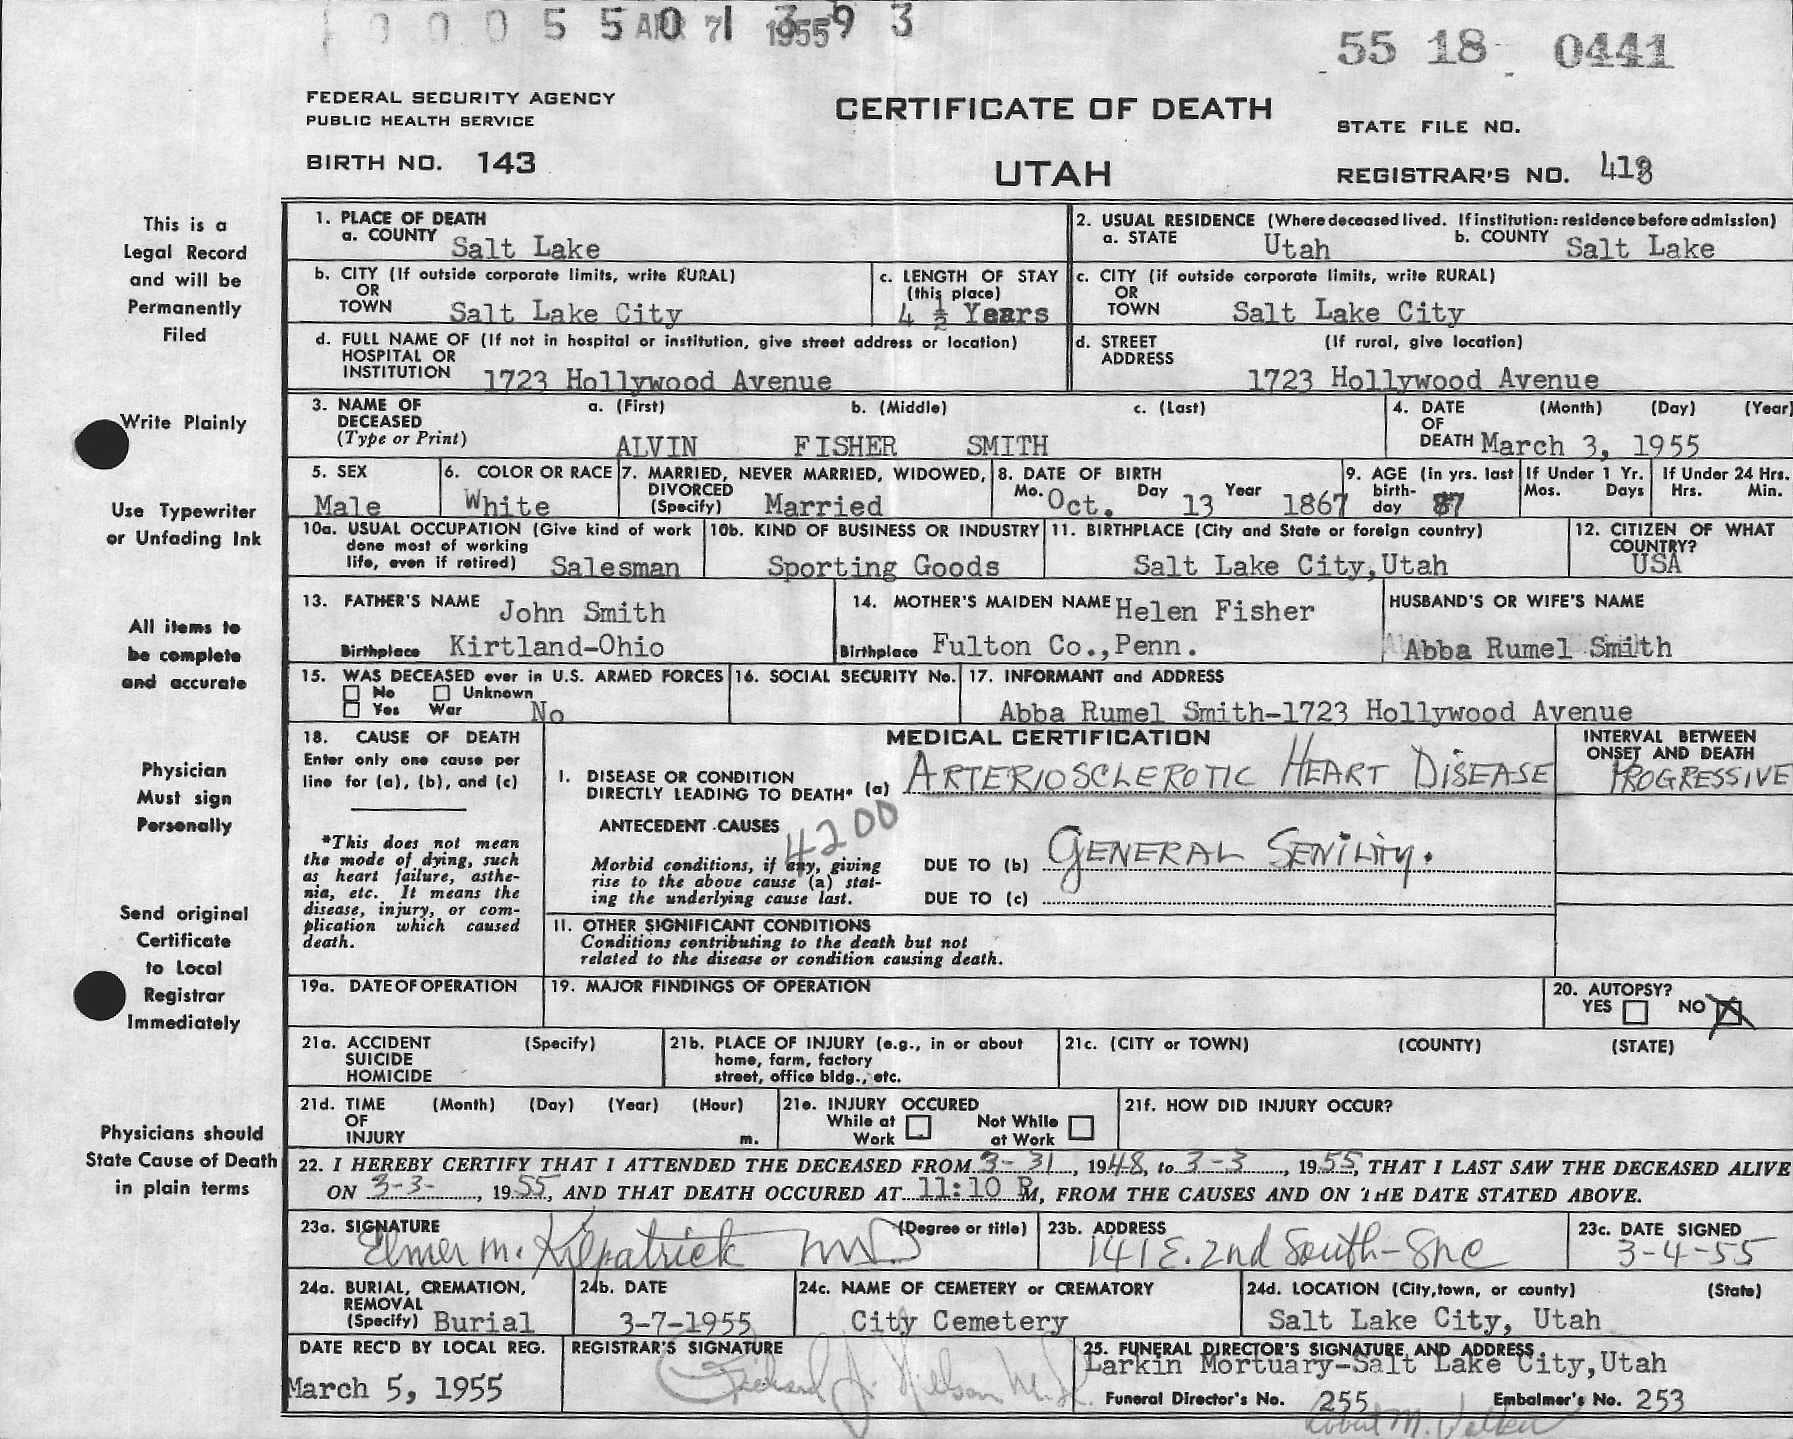 APR 7 1955
55 18 0441
FEDERAL SECURITY AGENCY
PUBLIC HEALTH SERVICE
CERTIFICATE OF DEATH
STATE FILE NO.
BIRTH NO. 143
UTAH
REGISTRAR'S NO.
This is a
Legal Record
and will be
Permanently
Filed
Write Plainly
Use Typewriter
or Unfading Ink
All items to
be complete
and accurate
Physician
Must sign
Personally
Send original
Certificate
to Local
Registrar
Immediately
Physicians should
State Cause of Death
in plain terms
1. PLACE OF DEATH
a. COUNTY Salt Lake
2. USUAL RESIDENCE (Where deceased lived. If institution: residence before admission)
a. STATE Utah b. COUNTY Salt Lake
b. CITY (If outside corporate limits, write RURAL)
OR
TOWN Salt Lake City
c. LENGTH OF STAY
(this place)
4 ½ Years
c. CITY (if outside corporate limits, write RURAL)
OR
TOWN Salt Lake City
d. FULL NAME OF (If not in hospital or institution, give street address or location)
HOSPITAL OR
INSTITUTION 1723 Hollywood Avenue
d. STREET (If rural, give location)
ADDRESS
1723 Hollywood Avenue
3. NAME OF a. (First) b. (Middle) c. (Last)
DECEASED
(Type or Print)
ALVIN FISHER SMITH
4. DATE (Month) (Day) (Year)
OF
DEATH March 3, 1955
5. SEX
Male
6. COLOR OR RACE
White
7. MARRIED, NEVER MARRIED, WIDOWED,
DIVORCED
(Specify) Married
8. DATE OF BIRTH
Mo. Oct. Day 13 Year 1867
9. AGE (in yrs. last
birth-
day 87
If Under 1 Yr.
Mos. Days
If Under 24 Hrs.
Hrs. Min.
10a. USUAL OCCUPATION (Give kind of work
done most of working
life, even if retired) Salesman
10b. KIND OF BUSINESS OR INDUSTRY
Sporting Goods
11. BIRTHPLACE (City and State or foreign country)
Salt Lake City,Utah
12. CITIZEN OF WHAT
COUNTRY?
USA
13. FATHER'S NAME John Smith
Birthplace Kirtland-Ohio
14. MOTHER'S MAIDEN NAME Helen Fisher
Birthplace Fulton Co.,Penn.
HUSBAND'S OR WIFE'S NAME
Abba Rumel Smith
15. WAS DECEASED ever in U.S. ARMED FORCES
No Unknown
Yes War No
16. SOCIAL SECURITY No.
17. INFORMANT and ADDRESS
Abba Rumel Smith-1723 Hollywood Avenue
18. CAUSE OF DEATH
Enter only one cause per
line for (a), (b), and (c)
*This does not mean
the mode of dying, such
as heart failure, asthe-
nia, etc. It means the
disease, injury, or com-
plication which caused
death.
MEDICAL CERTIFICATION
INTERVAL BETWEEN
ONSET AND DEATH
PROGRESSIVE
I. DISEASE OR CONDITION
DIRECTLY LEADING TO DEATH* (a) ARTERIOSCLEROTIC HEART DISEASE
ANTECEDENT CAUSES 4200
Morbid conditions, if any, giving
rise to the above cause (a) stat-
ing the underlying cause last.
DUE TO (b) GENERAL SENILITY.
DUE TO (c)
II. OTHER SIGNIFICANT CONDITIONS
Conditions contributing to the death but not
related to the disease or condition causing death.
19a. DATE OF OPERATION
19. MAJOR FINDINGS OF OPERATION
20. AUTOPSY?
YES NO
21a. ACCIDENT (Specify)
SUICIDE
HOMICIDE
21b. PLACE OF INJURY (e.g., in or about
home, farm, factory
street, office bldg., etc.
21c. (CITY or TOWN) (COUNTY) (STATE)
21d. TIME (Month) (Day) (Year) (Hour)
OF
INJURY m.
21e. INJURY OCCURED
While at Work Not While at Work
21f. HOW DID INJURY OCCUR?
22. I HEREBY CERTIFY THAT I ATTENDED THE DECEASED FROM 3-31, 1948, to 3-3, 1955, THAT I LAST SAW THE DECEASED ALIVE
ON 3-3-, 1955, AND THAT DEATH OCCURED AT 11:10 P M, FROM THE CAUSES AND ON THE DATE STATED ABOVE.
23a. SIGNATURE (Degree or title)
Elmer M. Kilpatrick MD
23b. ADDRESS
141 E. 2nd South-SLC
23c. DATE SIGNED
3-4-55
24a. BURIAL, CREMATION,
REMOVAL
(Specify) Burial
24b. DATE
3-7-1955
24c. NAME OF CEMETERY or CREMATORY
City Cemetery
24d. LOCATION (City,town, or county) (State)
Salt Lake City, Utah
DATE REC'D BY LOCAL REG.
March 5, 1955
REGISTRAR'S SIGNATURE
25. FUNERAL DIRECTOR'S SIGNATURE AND ADDRESS
Larkin Mortuary-Salt Lake City,Utah
Funeral Director's No. 255 Embalmer's No. 253